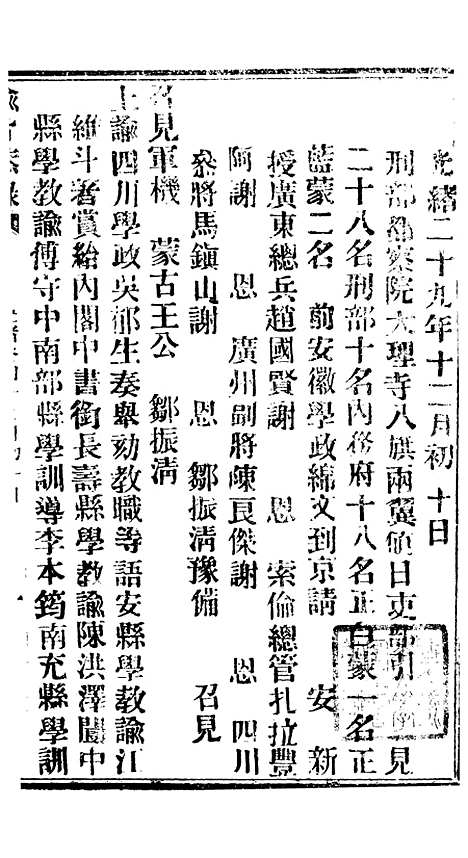 光緒二十九年十二月初 十日
刑部都察院大理寺八旗兩翼値日吏部引 見
二十八名刑部十名內務府十八名正白蒙一名正
藍蒙二名 前安徽學政綿文到京請 安 新
授廣東總兵趙國賢謝 恩 索倫總管扎拉豐
阿謝 恩 廣州副將陳良傑謝 恩 四川
叅將馬鎭山謝 恩 鄒振清豫備 召見
召見軍機 蒙古王公 鄒振清
上諭四川學政吳郁生奏舉劾教職等語安縣學教諭江
維斗著賞給內閣中書銜長壽縣學教諭陳洪澤閬中
縣學教諭傅守中南部縣學訓導李本筠南充縣學訓